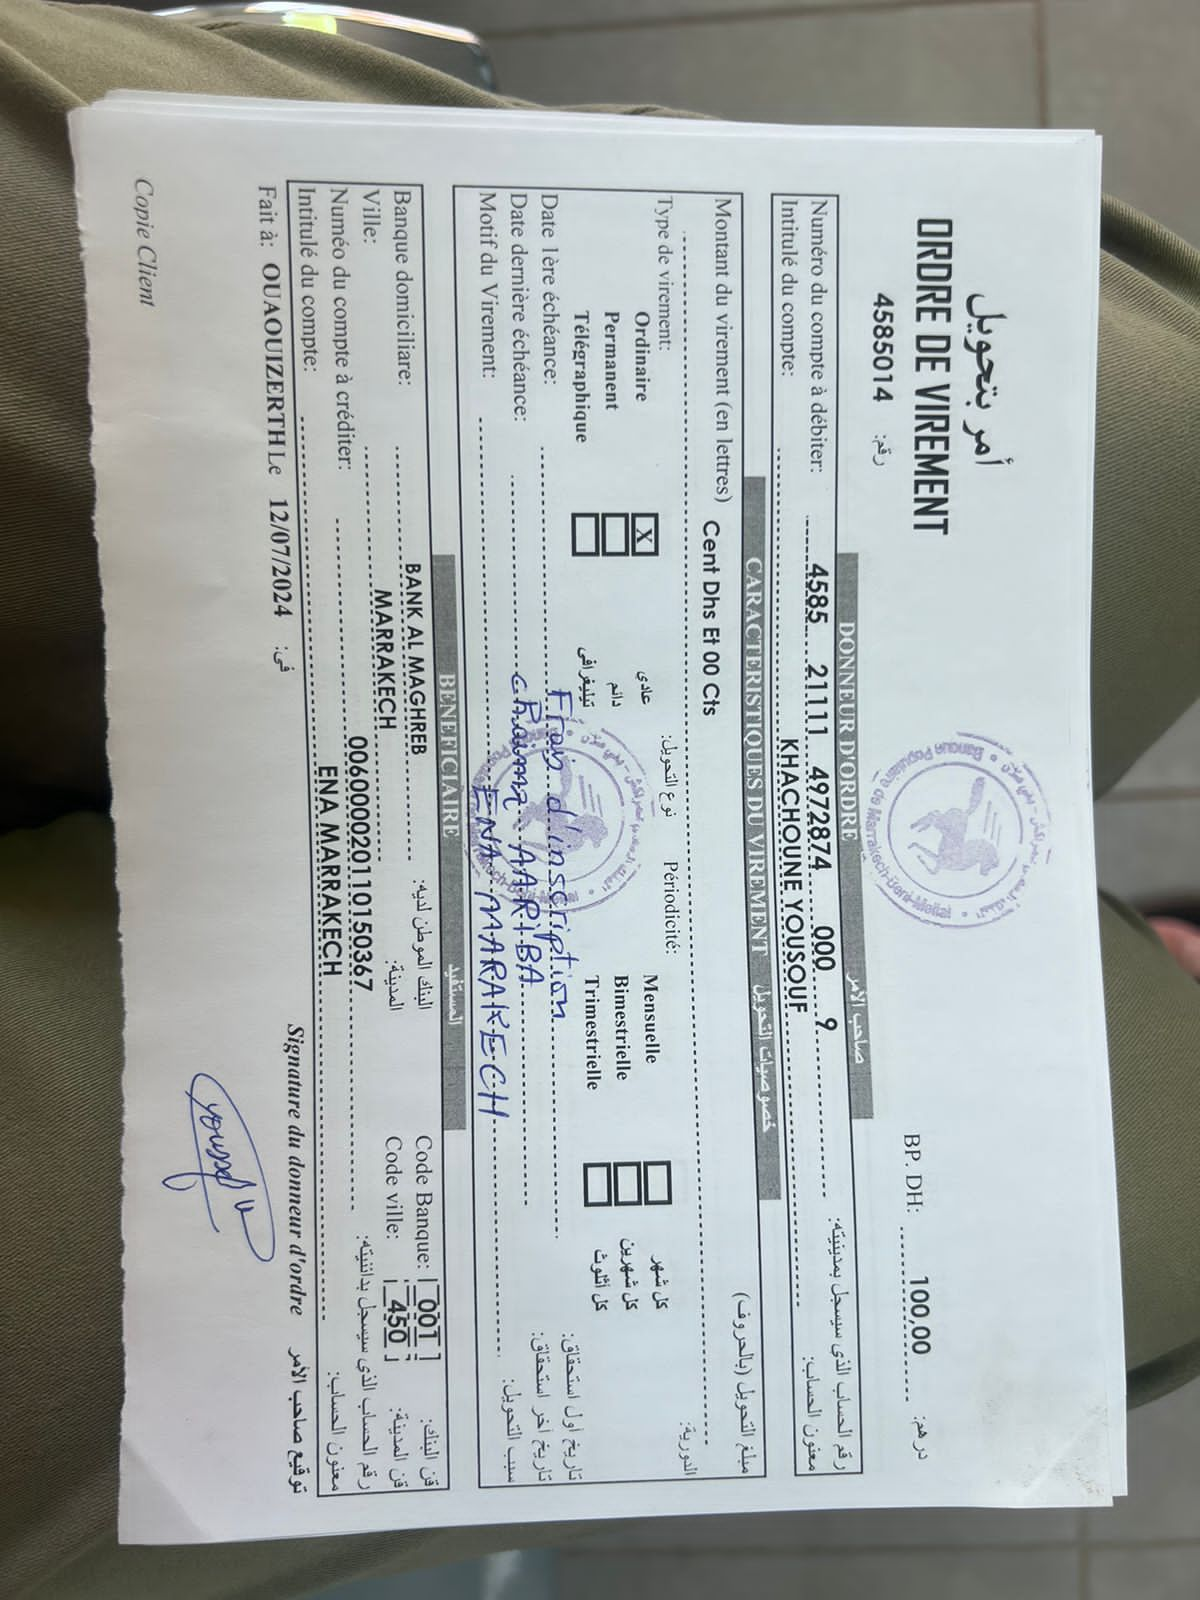 أمر بتحويل
ORDRE DE VIREMENT
4585014 رقم:
BP. DH: 100,00 درهم:
DONNEUR D'ORDRE صاحب الأمر
Numéro du compte à débiter: 4585 21111 4972874 000 9 رقم الحساب الذي سيسجل بمدينيته:
Intitulé du compte: KHACHOUNE YOUSOUF معنون الحساب:
CARACTERISTIQUES DU VIREMENT خصوصيات التحويل
Montant du virement (en lettres) Cent Dhs Et 00 Cts مبلغ التحويل (بالحروف)
Type de virement: نوع التحويل: Périodicité: الدورية:
Ordinaire X عادي Mensuelle كل شهر
Permanent دائم Bimestrielle كل شهرين
Télégraphique تيليغرافي Trimestrielle كل أثلوث
Date 1ère échéance: Frais d'inscription تاريخ أول استحقاق:
Date dernière échéance: chaima AARIBA تاريخ آخر استحقاق:
Motif du Virement: ENA MARAKECH سبب التحويل:
BENEFICIAIRE المستفيد
Banque domiciliare: BANK AL MAGHREB البنك الموطن لديه: Code Banque: 001 قن البنك:
Ville: MARRAKECH المدينة: Code ville: 450 قن المدينة:
Numéo du compte à créditer: 006000020110150367 رقم الحساب الذي سيسجل بدائنيته:
Intitulé du compte: ENA MARRAKECH معنون الحساب:
Fait à: OUAOUIZERTH Le 12/07/2024 في: Signature du donneur d'ordre توقيع صاحب الأمر
Copie Client
Banque Populaire de Marrakech-Beni-Mellal